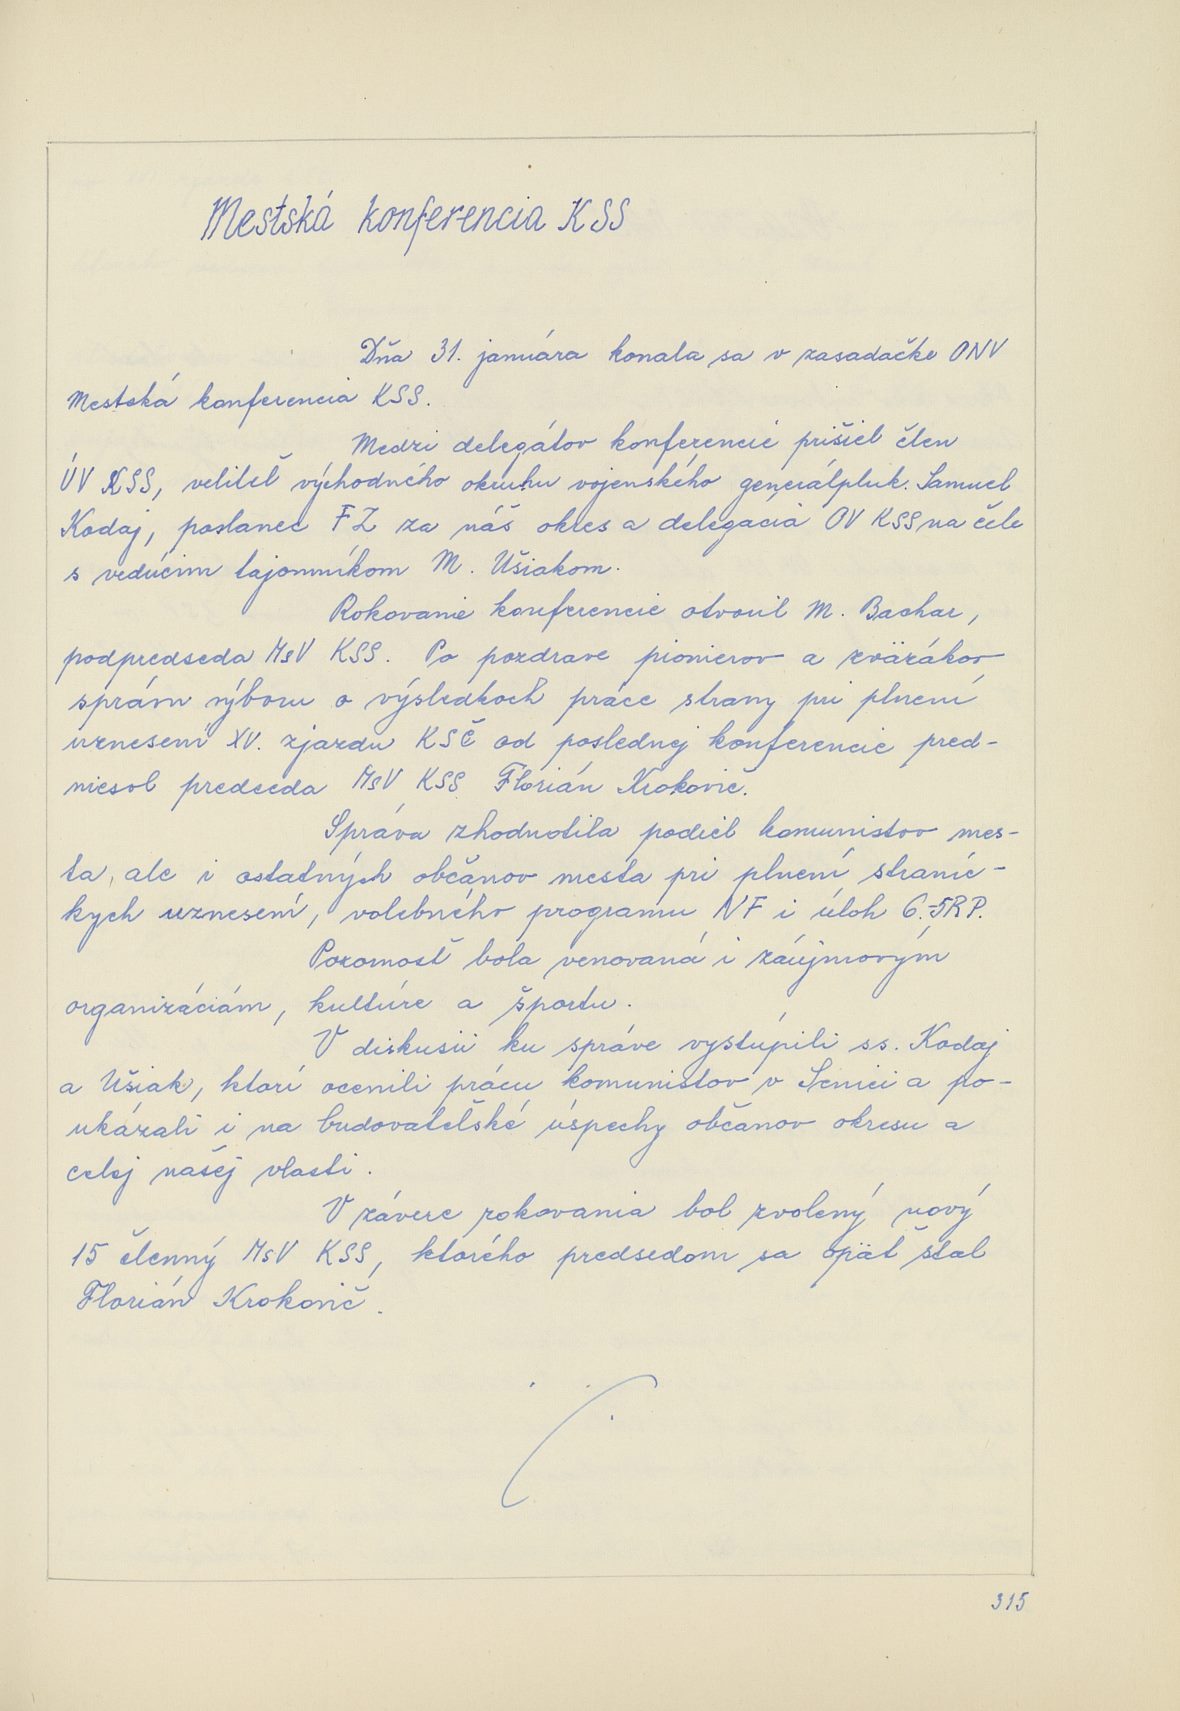 Mestská konferencia KSS
Dňa 31. januára konala sa v zasadačke ONV
Mestská konferencia KSS.
Medzi delegátov konferencie prišiel člen
ÚV KSS, veliteľ východného okruhu vojenského generálpluk. Samuel
Kodaj, poslanec FZ za náš okres a delegacia OV KSS na čele
s vedúcim tajomníkom M. Ušiakom.
Rokovanie konferencie otvoril M. Bachar,
podpredseda MsV KSS. Po pozdrave pionierov a zväzákov
správu výboru o výsledkoch práce strany pri plnení
uznesení XV. zjazdu KSČ od poslednej konferencie pred-
niesol predseda MsV KSS Florián Krokovič.
Správa zhodnotila podiel komunistov mes-
ta, ale i ostatných občanov mesta pri plnení straníc-
kych uznesení, volebného programu NF i úloh 6.-5RP.
Pozornosť bola venovaná i záujmovým
organizáciám, kultúre a športu.
V diskusii ku správe vystúpili ss. Kodaj
a Ušiak, ktorí ocenili prácu komunistov v Senici a po-
ukázali i na budovateľské úspechy občanov okresu a
celej našej vlasti.
V závere rokovania bol zvolený nový
15 členný MsV KSS, ktorého predsedom sa opäť stal
Florián Krokovič.
315